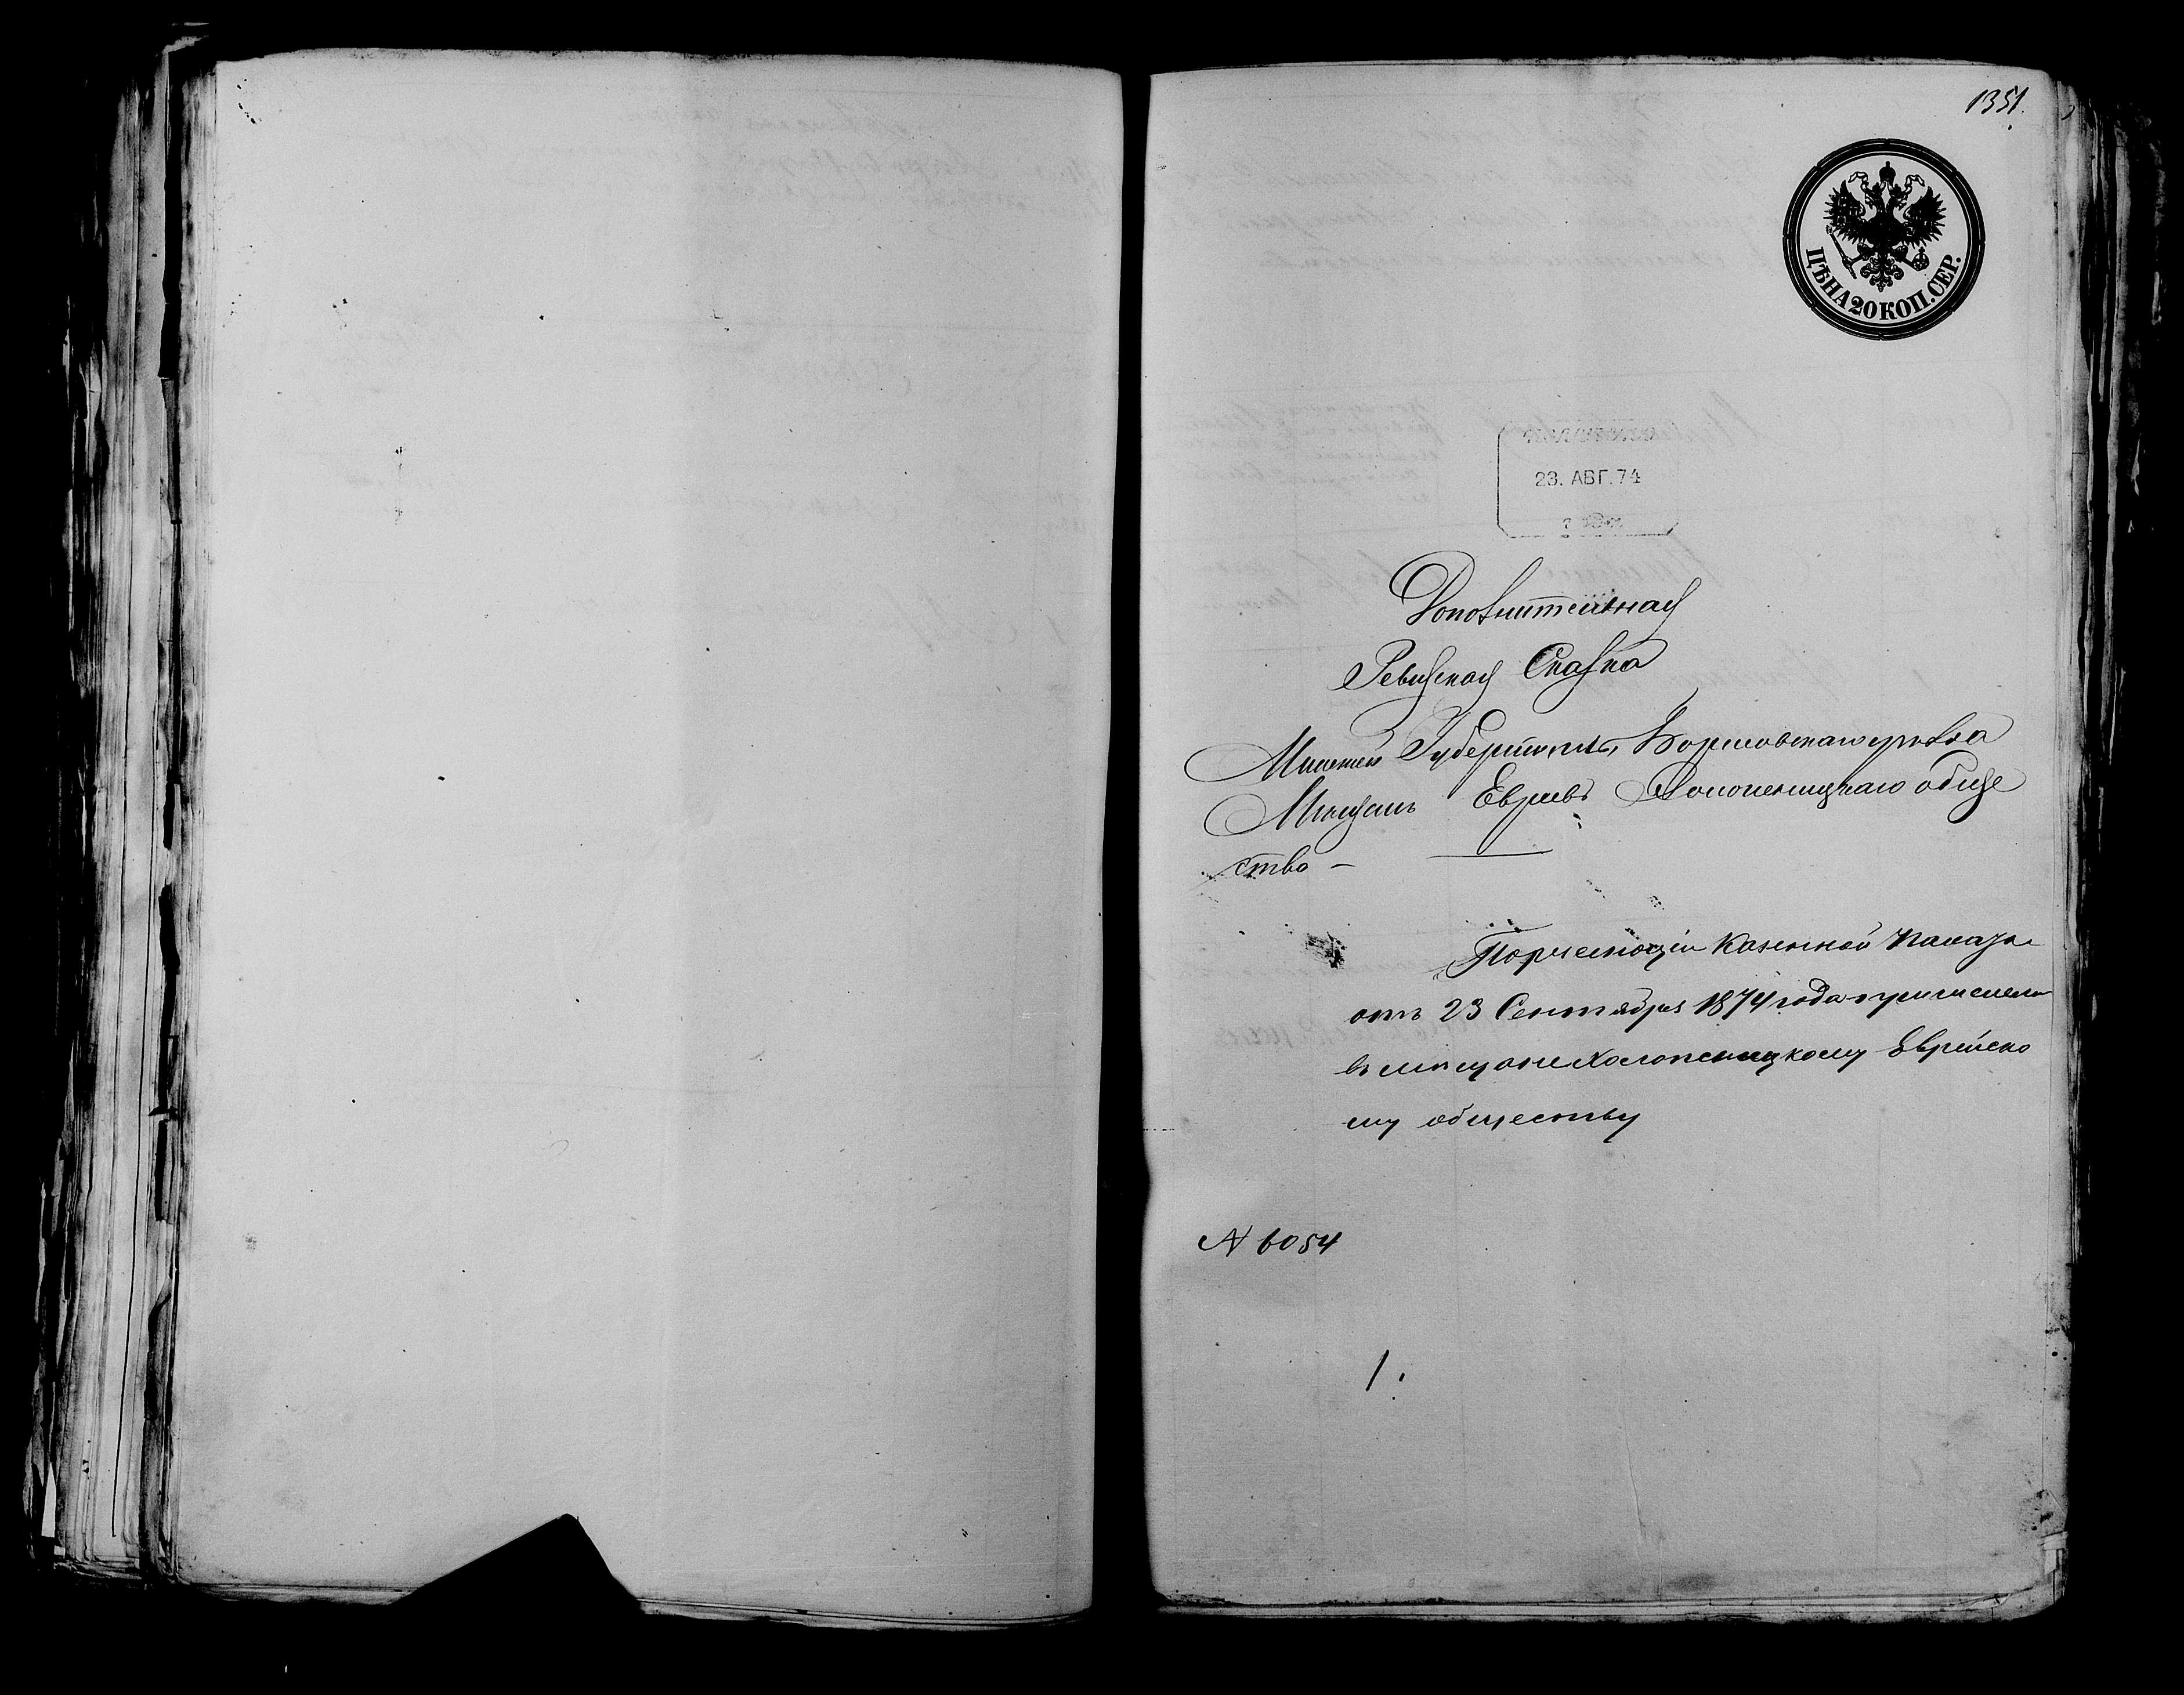 1351.
ЦѢНА 20 КОП. СЕР.
23. АВГ. 74
Дополнительная
Ревизская Сказка
Минской Губерніи, Борисовскаго уѣзда
Мѣщанъ Евреевъ Холопеницкаго обще
ство –
Казенной Палаты
отъ 23 Сентября 1874 года причислен
въ мѣщане Холопеницкому Еврейско
му обществу
N 6054
1.